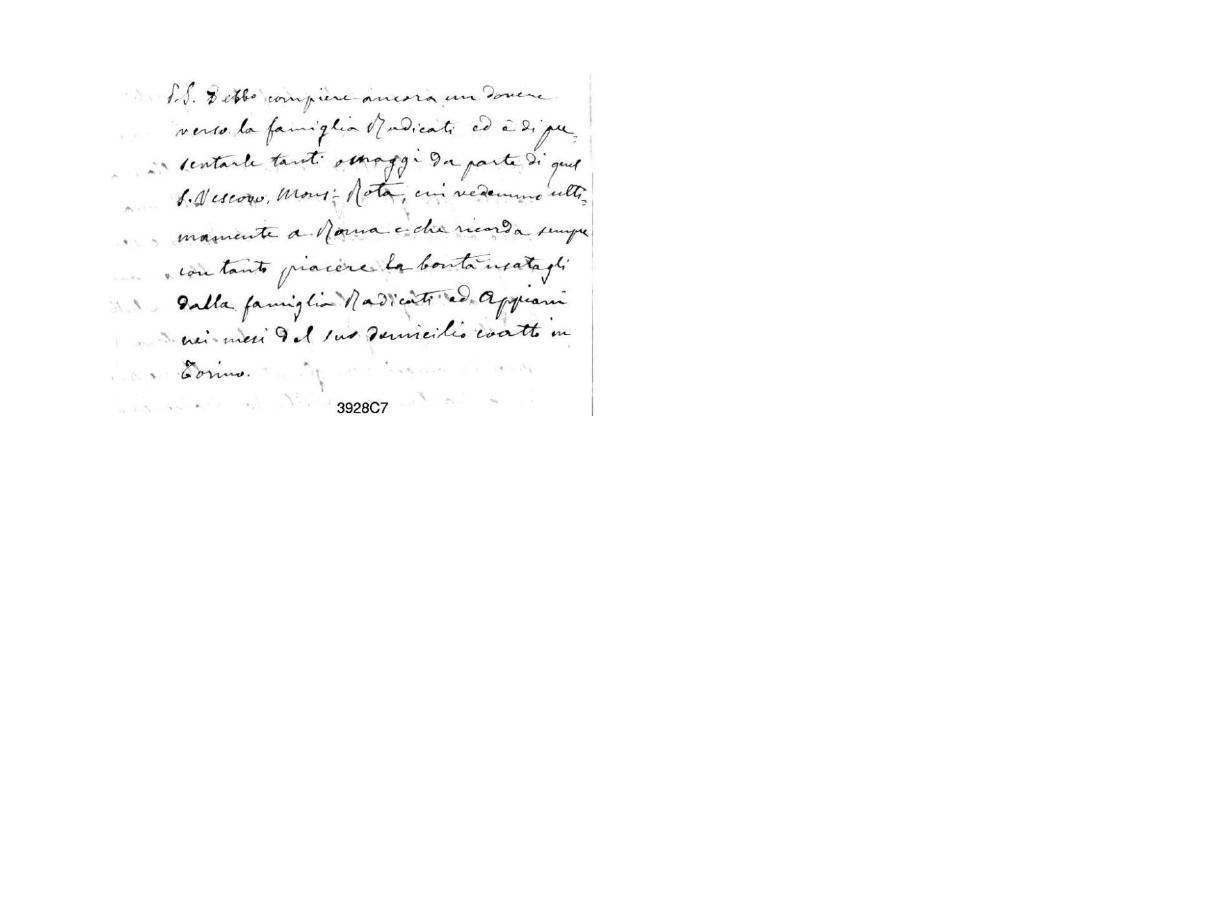 P.S. Debbo compiere ancora un dovere
verso la famiglia Radicati ed è di pre=
sentarle tanti omaggi da parte di quel
S. Vescovo, Mons: Rota, cui vedemmo ulti=
mamente a Roma e che ricorda sempre
con tanto piacere la bontà usatagli
dalla famiglia Radicati ed Appiani
nei mesi del suo domicilio coatto in
Torino.
3928C7